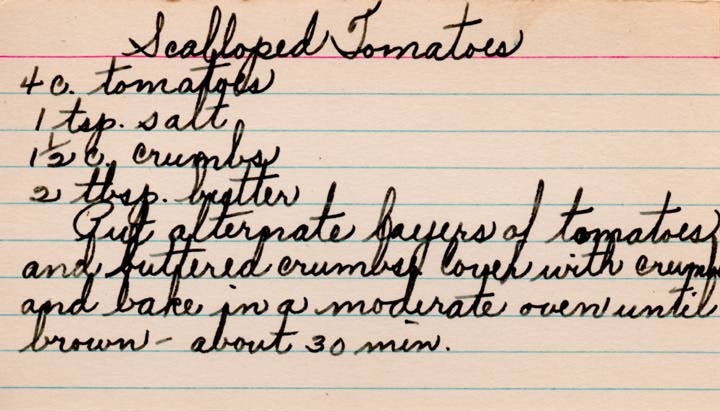 Scalloped Tomatoes
4 c. tomatoes
1 tsp. salt
1 1/2 c. crumbs
2 tbsp. butter
Put alternate layers of tomatoes
and buttered crumbs, cover with crumbs
and bake in a moderate oven until
brown - about 30 min.